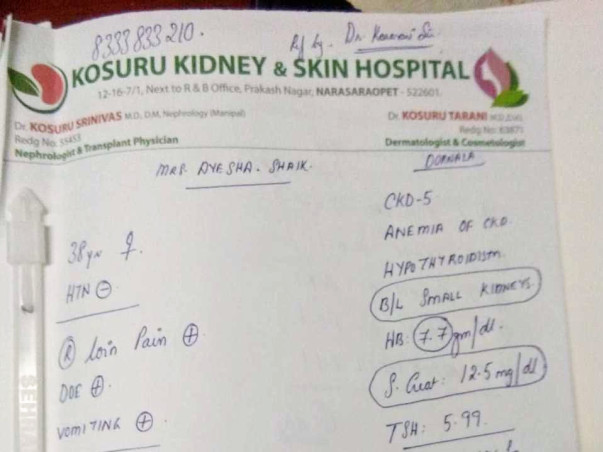 8333833210.
Ref by. Dr.
KOSURU KIDNEY & SKIN HOSPITAL
12-16-7/1, Next to R & B Office, Prakash Nagar, NARASARAOPET - 522601.
Dr. KOSURU SRINIVAS M.D, D.M, Nephrology (Manipal)
Redg No: 55453
Nephrologist & Transplant Physician
Dr. KOSURU TARANI
Redg No: 83871
Dermatologist & Cosmetologist
MRS. AYESHA. SHAIK.
DORNALA
38yr ♀.
HTN ⊖
Ⓡ loin Pain ⊕
DOE ⊕.
VOMITING ⊕
CKD-5
ANEMIA OF CKD.
HYPOTHYROIDISM.
B/L SMALL KIDNEYS.
HB: 7.7 gm/dl.
S. Creat: 12.5 mg/dl
TSH: 5.99.
SEHRA